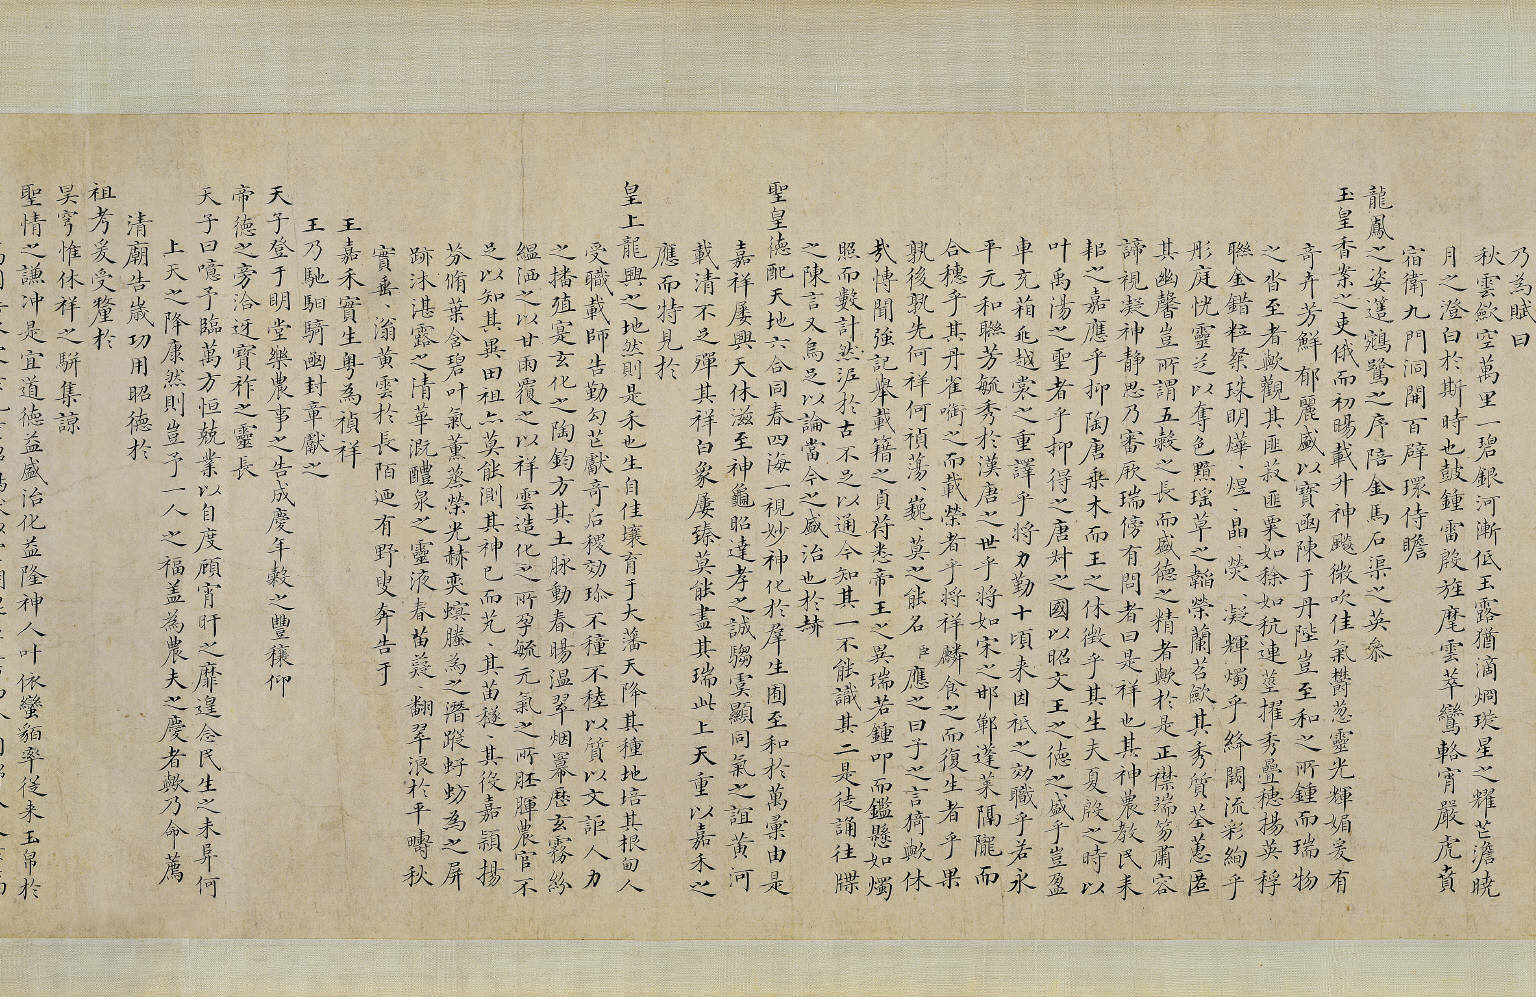 乃為賦曰
秋雲歛空萬里一碧銀河漸低玉露猶滴烱猨星之耀芒澹曉
月之澄白於斯時也鼓鍾雷殷旌麾雲萃鸞輅宵嚴虎賁
宿衛九門洞開百辟環侍瞻
龍鳳之姿邁鵷鷺之序陪金馬石渠之英叅
玉皇香案之吏俄而初暘載升神飈微吹佳氣欝葱靈光輝媚爰有
奇卉芳鮮郁麗盛以寶函陳于丹陛豈至和之所鍾而瑞物
之沓至者歟觀其匪菽匪粟如稌如秔連莖擢秀疊穗揚英稃
聯金錯粒粲珠明燁、煌、晶、熒、凝輝燭乎絳闕流彩絢乎
彤庭恍靈芝以奪色黯瑶草之韜榮蘭苕歛其秀質荃蕙匿
其幽馨豈所謂五穀之長而盛德之精者歟於是正襟端笏肅容
諦視凝神静思乃審厥瑞傍有問者曰是祥也其神農教民耒
耜之嘉應乎抑陶唐乗木而王之休徴乎其生夫夏殷之時以
叶禹湯之聖者乎抑得之唐叔之國以昭文王之德之盛乎豈盈
車充箱兆越裳之重譯乎將力勤十頃来因祗之効職乎若永
平元和聯芳毓秀於漢唐之世乎將如宋之邯鄲蓬莱隅隴而
合穗乎其丹雀啣之而載榮者乎將祥麟食之而復生者乎果
孰後孰先何祥何禎蕩、巍、莫之能名臣應之曰子之言猗歟休
㢤愽聞強記舉載籍之貞符悉帝王之異瑞若鍾叩而鑑懸如燭
照而數計然泥於古不足以通今知其一不能識其二是徒誦往牒
之陳言又烏足以論當今之盛治也於赫
聖皇德配天地六合同春四海一視妙神化於羣生囿至和於萬彙由是
嘉祥屡興天休滋至神龜昭達孝之誠騶虞顯同氣之誼黄河
載清不足殫其祥白象屡臻莫能盡其瑞此上天重以嘉禾之
應而特見於
皇上龍興之地然則是禾也生自佳壤育于大藩天降其種地培其根甸人
受職載師告勤勾芒獻奇后稷効珎不穜不稑以質以文詎人力
之播殖寔玄化之陶鈞方其土脉動春暘温翠烟羃歴玄霧紛
緼洒之以甘雨覆之以祥雲造化之所孕毓元氣之所胚腪農官不
足以知其異田祖亦莫能測其神已而芃、其苗穟、其後嘉頴揚
芬脩葉含碧叶氣薫蒸榮光赫奕螟螣為之潛蹤蚜蚄為之屏
跡沐湛露之清華溉醴泉之靈液春苗薿、翻翠浪於平疇秋
實垂、滃黄雲於長陌迺有野叟奔告于
王嘉禾實生粤為禎祥
王乃馳馹騎函封章獻之
天子登于明堂樂農事之告成慶年穀之豐穰仰
帝德之旁洽迓寶祚之靈長
天子曰噫予臨萬方恒兢業以自度顧宵旰之靡遑念民生之未昇何
上天之降康然則豈予一人之福盖為農夫之慶者歟乃命薦
清廟告嵗功用昭德於
祖考爰受釐於
昊穹惟休祥之駢集諒
聖情之謙冲是宜道德益盛治化益隆神人叶依蠻貊率従来玉帛於